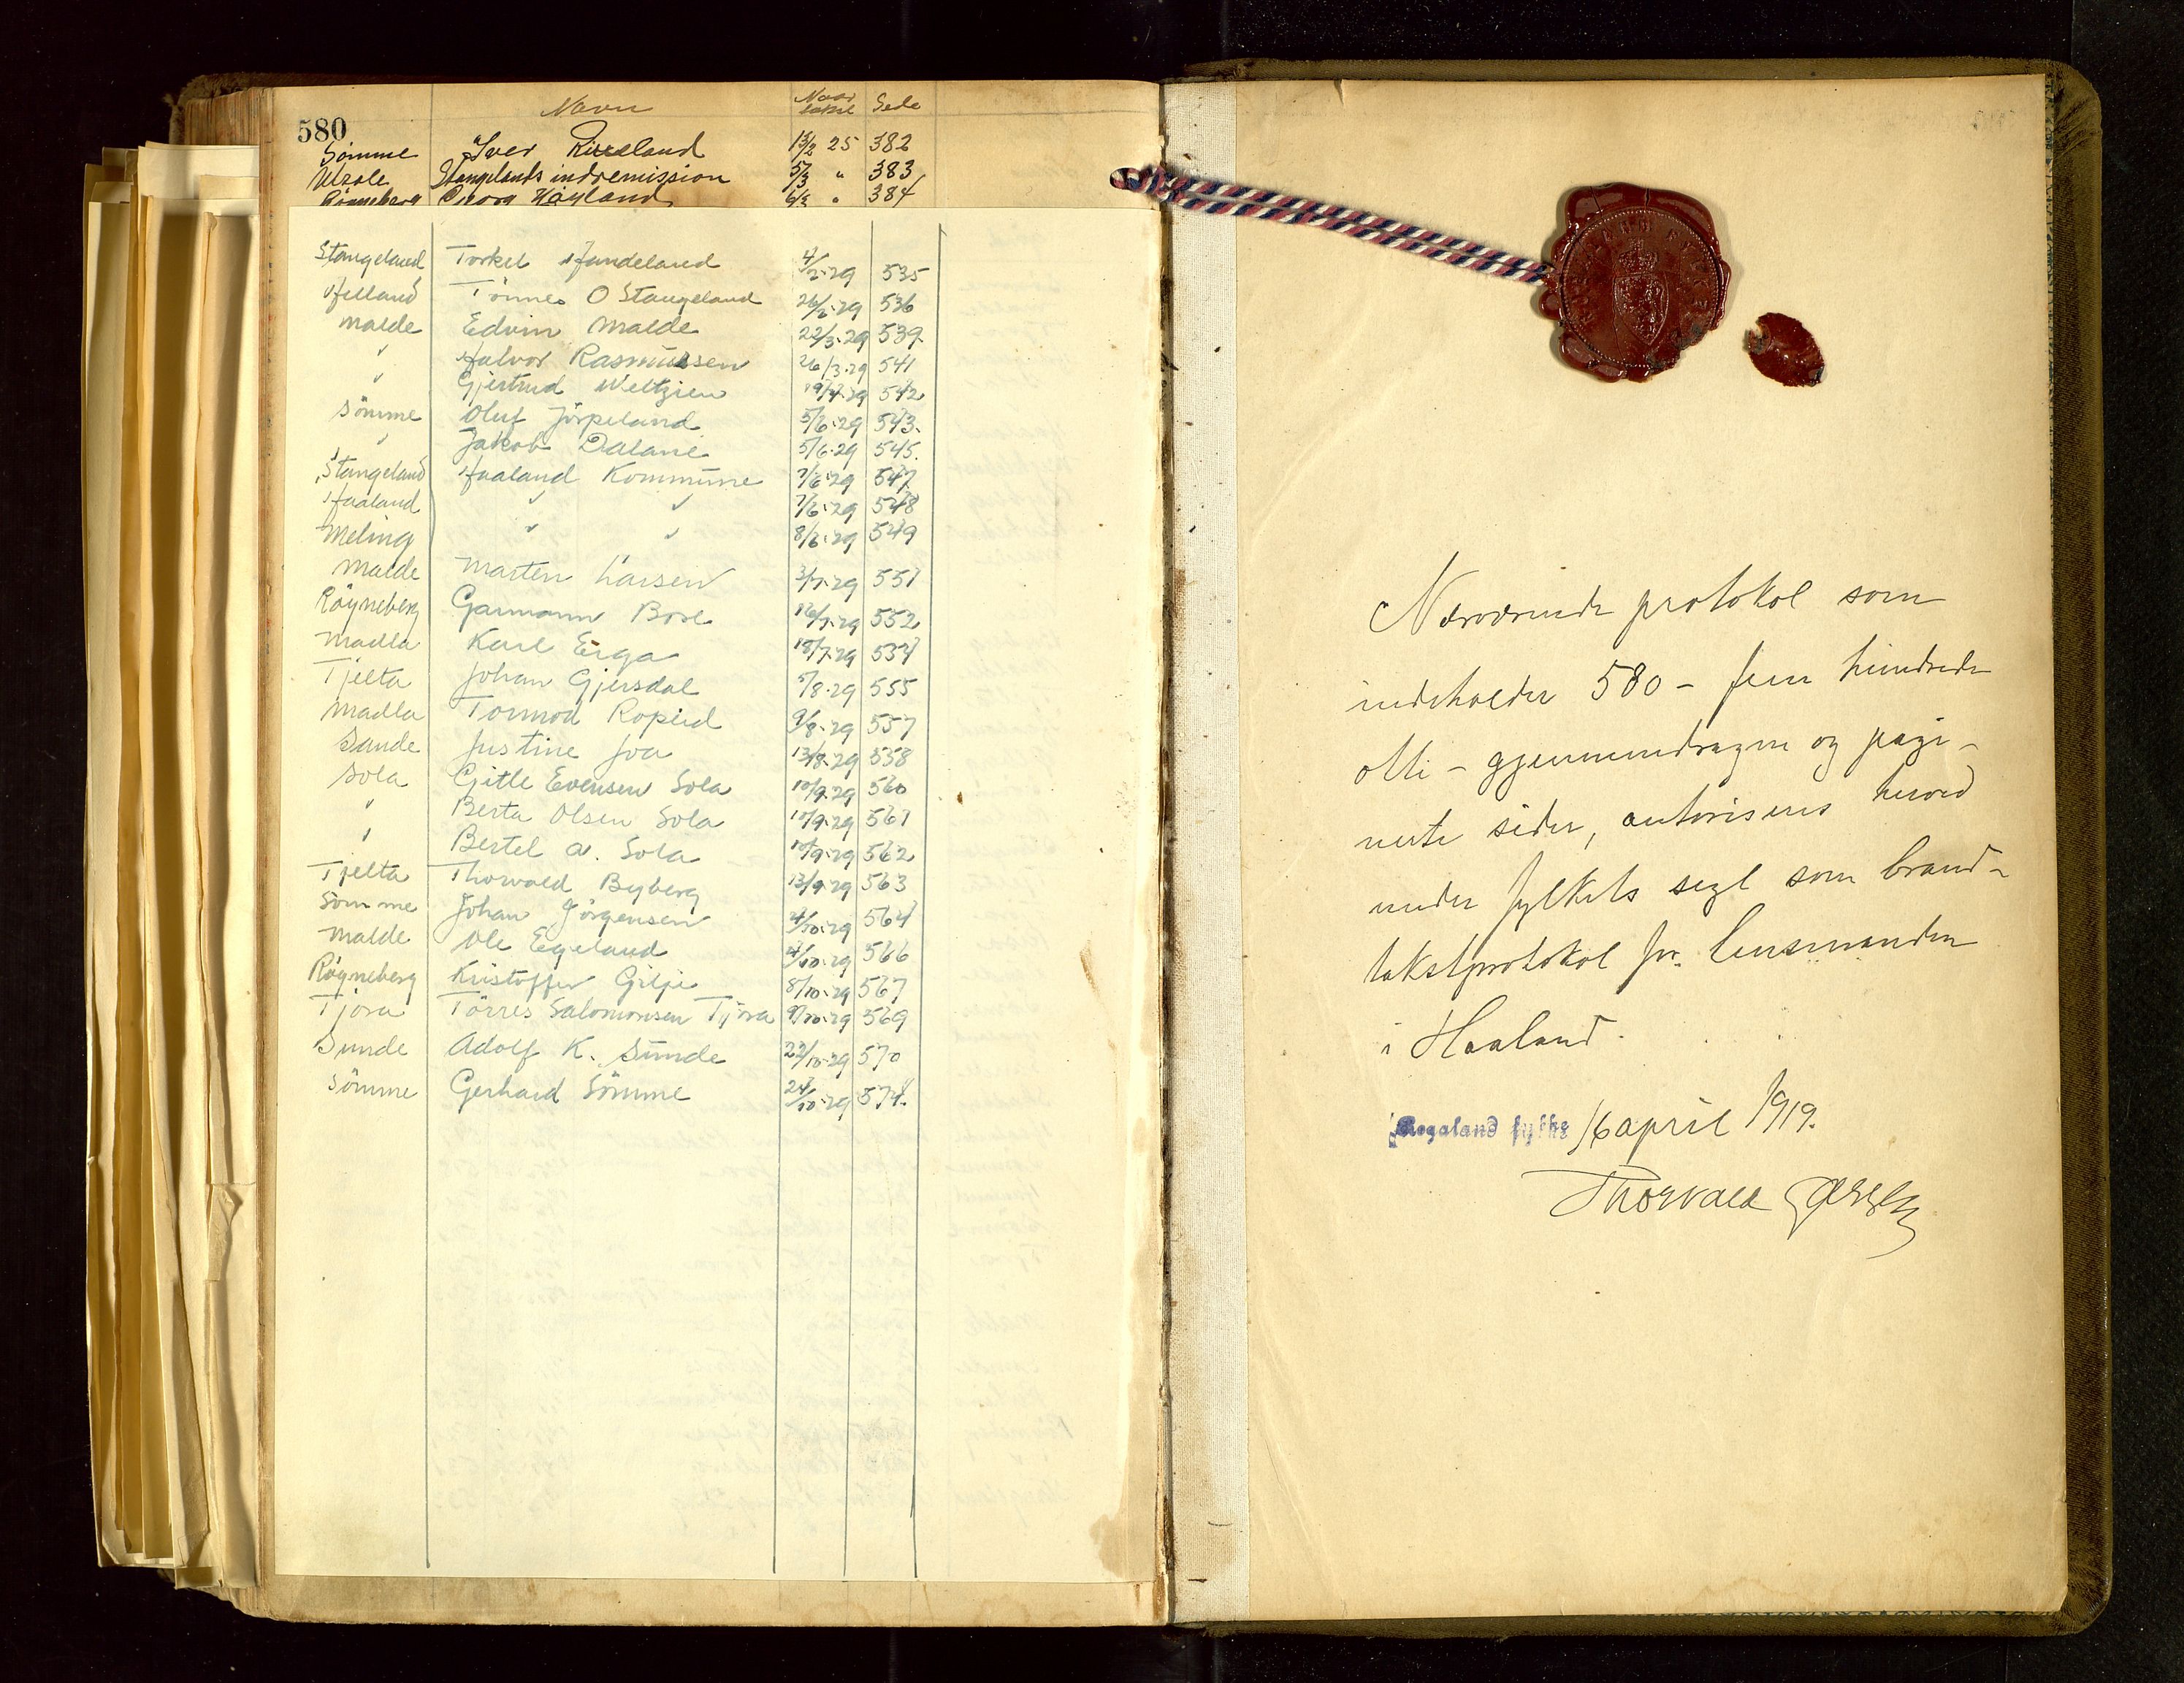 580
Navn Naar takst Side
Sömme Iver Risseland 13/2 25 382
Utsole Stangelands indremission 5/3 " 383
Röyneberg Georg Höyland 6/3 " 384
Stangeland Torkel Handeland 4/2-29 535
Helland Tönnes O Stangeland 26/2-29 536
Malde Edvin Malde 22/3-29 539.
" Halvor Rasmussen 26/3-29 541
" Gjertrud Weltzien 19/4-29 542
Sömme Oluf Jörpeland 5/6-29 543.
" Jakob Dalane 5/6-29 545.
Stangeland Haaland Kommune 7/6-29 547
Haaland " " 7/6-29 548
Meling " " 8/6-29 549
Malde Marten Larsen 3/7-29 551
Röyneberg Garmann Bore 16/7-29 552
Madla Karl Erga 18/7-29 554
Tjelta Johan Gjersdal 5/8-29 555
Madla Tormod Ropeid 9/8-29 557
Sande Justine Joa 13/8-29 558
Sola Gitle Evensen Sola 10/9-29 560
" Berta Olsen Sola 10/9-29 561
" Bertel A. Sola 10/9-29 562
Tjelta Thorvald Byberg 13/9-29 563
Sömme Johan Jörgensen 4/10-29 564
Malde Ole Egeland 4/10-29 566
Röyneberg Kristoffer Gilje 8/10-29 567
Tjora Törres Salomonsen Tjora 9/10-29 569
Sunde Adolf K. Sunde 22/10-29 570
Sömme Gerhard Sömme 24/10-29 574.
ROGALAND FYLKE
Nærværende protokol som
indeholder 580 - fem hundrede
otti - gjennemdragne og pagi-
nerte sider, autoriseres herved
under fylkets segl som brand-
takstprotokol for lensmanden
i Haaland.
Rogaland fylke 16 april 1919.
Thorvald